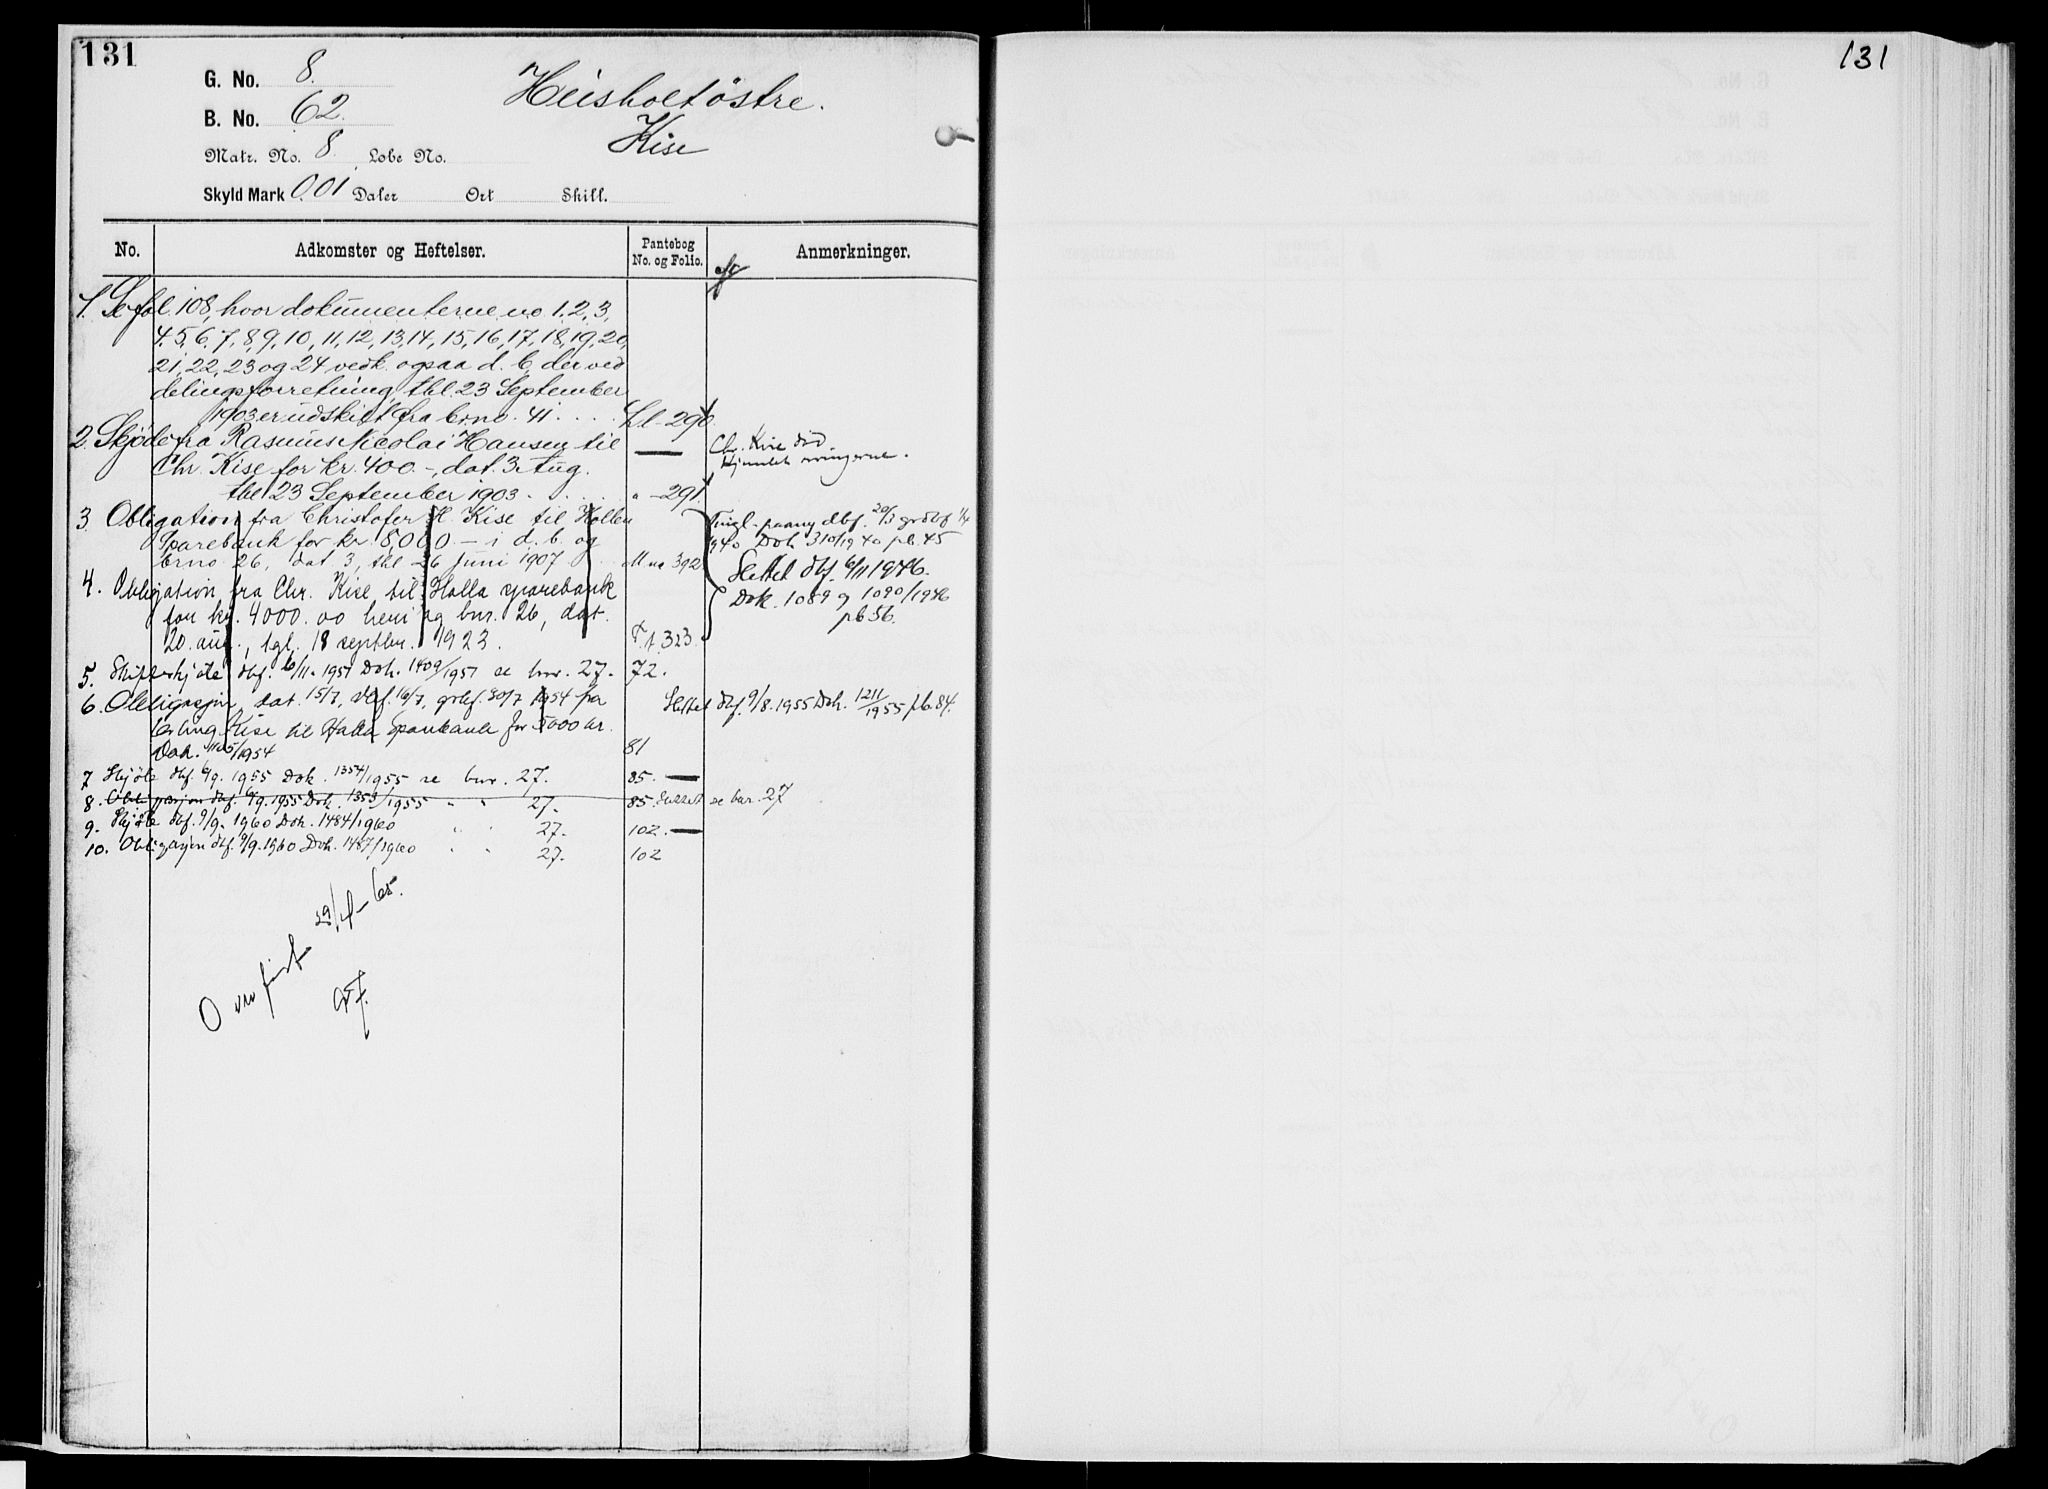 131
G. No. 8.
B. No. 62.
Matr. No. 8. Løbe No.
Skyld Mark 0.01 Daler Ort Skill.
Heisholt østre.
Kise
No. Adkomster og Heftelser. Pantebog No. og Folio. Anmerkninger.
1. Se fol. 108, hvor dokumenterne no 1, 2, 3,
4, 5, 6, 7, 8, 9, 10, 11, 12, 13, 14, 15, 16, 17, 18, 19, 20,
21, 22, 23 og 24 vedk. ogsaa d. b. der ved
delingsforretning, thl. 23 September
1903 er udskilt fra brno. 41 . . . . Ll - 290.
2. Skjøde fra Rasmus Nicolai Hansen til
Chr. Kise for kr. 400.-, dat. 3 Aug.
thl 23 September 1903 . . . . " - 291.
Chr. Kise død
3. Obligation fra Christofer H. Kise til Hollen
Sparebank for kr. 8,000 - i d. b. og
brno 26, dat 3, thl 26 Juni 1907 . . M no 392
Tingl. paany dbf. 20/3 grdbf 1/4
1940 Dok 310/1940 pb. 45
Slettet dbf. 6/11 1946.
Dok. 1089 og 1090/1946
pb 56.
4. Obligation fra Chr. Kise til Holla sparebank
for kr. 4000.00 heri og bnr. 26, dat.
20. aug., tgl. 18 septbr. 1923. 323
5. Skifteskjøte dbf. 6/11-1951 Dok. 1409/1951 se bnr. 27. 72.
6. Obligasjon dat. 15/7, dbf. 16/7, grbf. 30/7 1954 fra
Erling Kise til Holla Sparebank for 5000 kr.
Dok. 1105/1954 81
Slettet dbf. 9/8. 1955 Dok. 1211/1955 pb. 84.
7 Skjøte dbf. 6/9. 1955 Dok. 1354/1955 se bnr. 27. 85.
8. Obligasjon dbf. 6/9. 1955 Dok. 1353/1955 " " 27. 85. Slettet se bnr. 27
9. Skjøte dbf. 9/9. 1960 Dok. 1484/1960 " " 27. 102.
10. Obligasjon dbf. 9/9. 1960 Dok. 1487/1960 " " 27. 102
Overført 29/4-65.
131